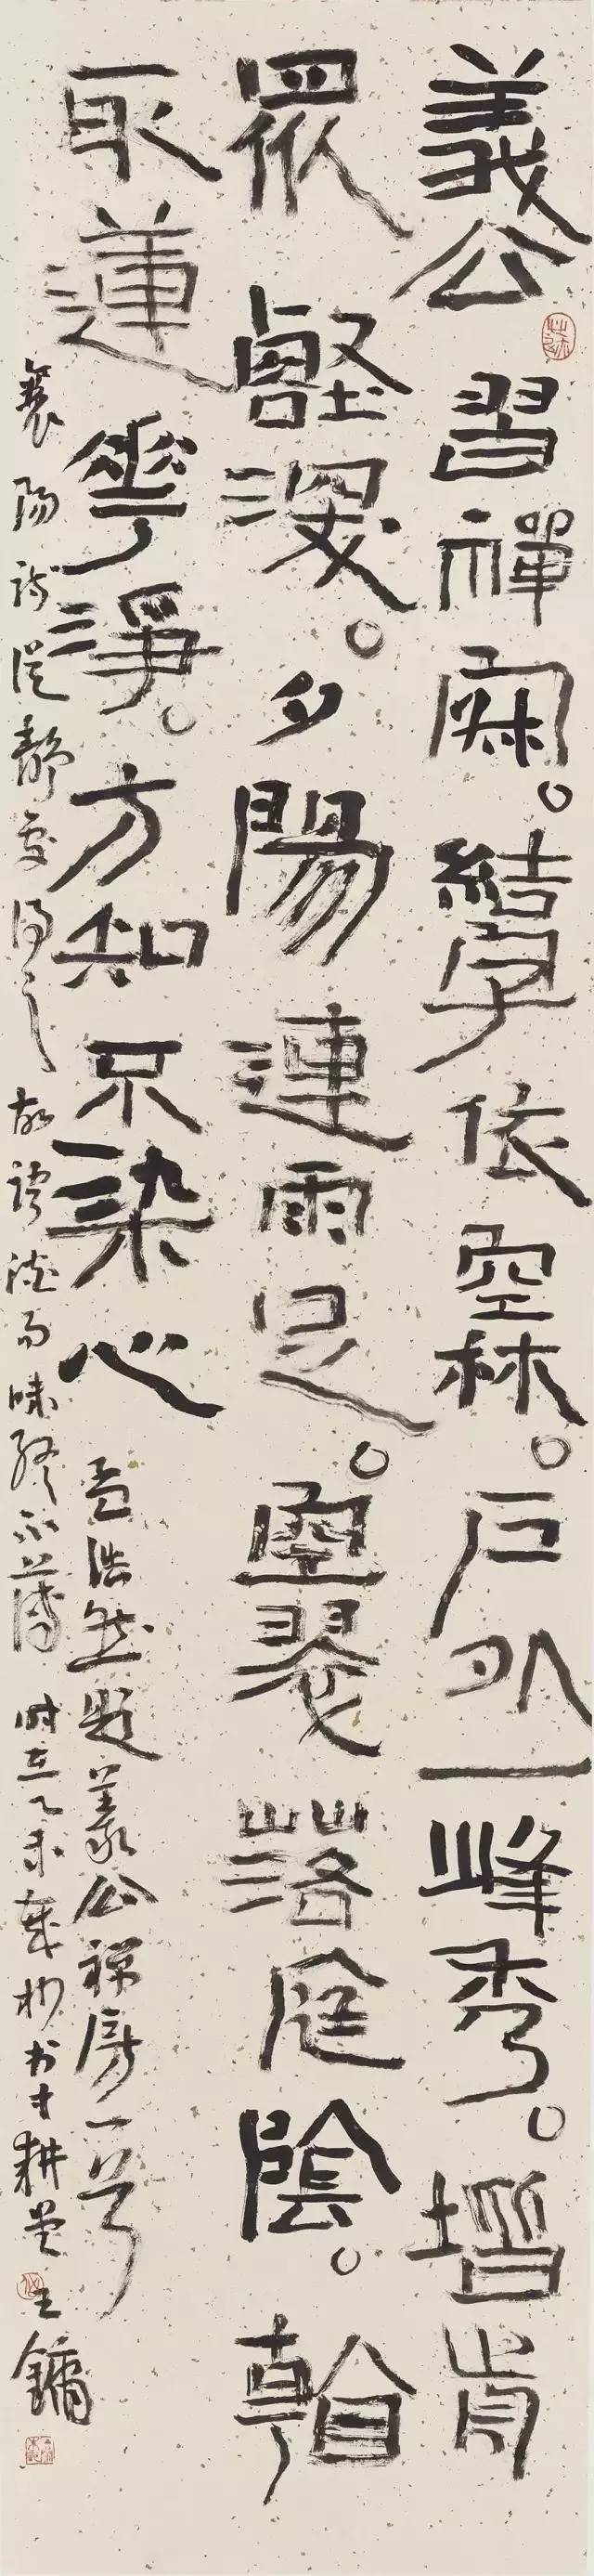 義公習禪寂。結宇依空林。戶外一峰秀。堦前
眾壑深。夕陽連雨足。空翠落庭陰。看
取蓮花淨。方知不染心 孟浩然題義公禪房一首
襄陽詩從靜處得之故語淡而味終不薄 時在乙未歲杪书于耕堂 王鏞